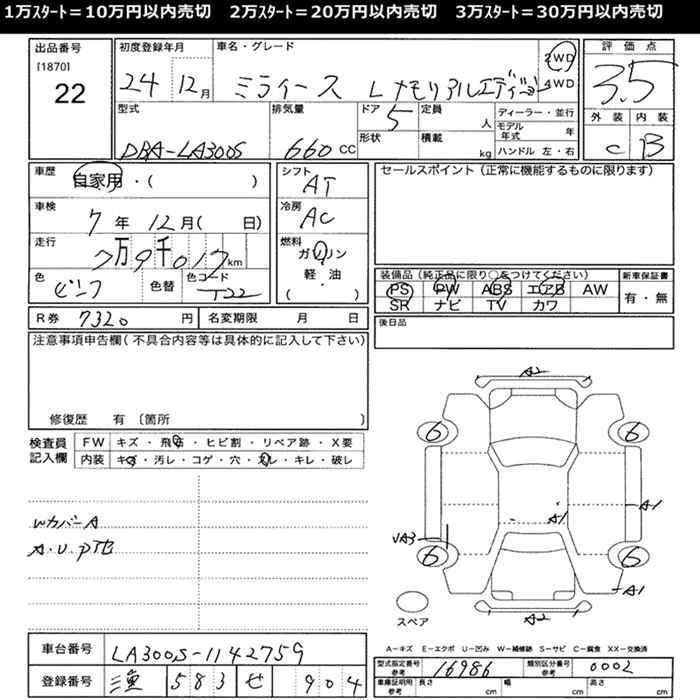 1万ｽﾀｰﾄ＝10万円以内売切　2万ｽﾀｰﾄ＝20万円以内売切　3万ｽﾀｰﾄ＝30万円以内売切
出品番号
[1870]
22
初度登録年月
24 12月
車名・グレード
ミライース L メモリアルエディション
2WD
4WD
評価点
3.5
外装 内装
C B
型式
DBA-LA300S
排気量
660 CC
ドア
5
定員
人
形状
積載
kg
ディーラー・並行
モデル年式 年
ハンドル 左・右
車歴
自家用・( )
車検
7年 12月( 日)
走行
7万9千017km
色
ピンク
色替
色コード
T22
シフト
AT
冷房
AC
燃料
ガソリン
軽・油
( )
セールスポイント（正常に機能するものに限ります）
装備品（純正品に限り○をつけてください）
PS PW ABS エアB AW
SR ナビ TV カワ
新車保証書
有・無
R券 7320 円
名変期限 月 日
後日品
注意事項申告欄(不具合内容等は具体的に記入して下さい)
修復歴 有〔箇所 〕
検査員記入欄
FW キズ・飛石・ヒビ割・リペア跡・X要
内装 キズ・汚レ・コゲ・穴・スレ・キレ・破レ
WカバーA
A・U・PTB
A2
6 6
A1
A1
UA3
6 6
A1
A2
スペア
A-キズ E-エクボ U-凹み W-補修跡 S-サビ C-腐食 XX-交換済
車台番号 LA300S-1142759
登録番号 三重 583 せ 904
型式指定番号 参考 16986
類別区分番号 参考 0002
車庫証明用 参考 長さ cm 幅 cm 高さ cm